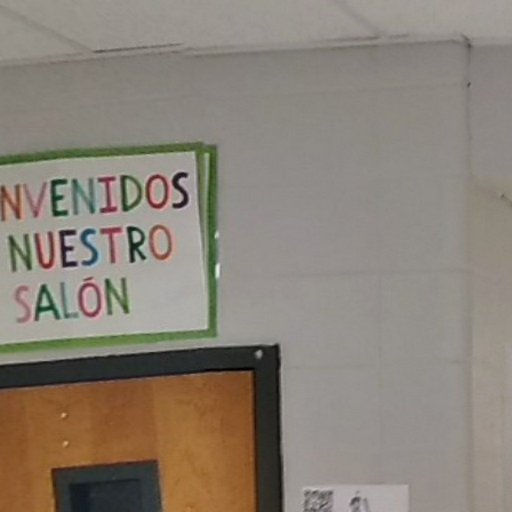 NVENIDOS
NUESTRO
SALÓN